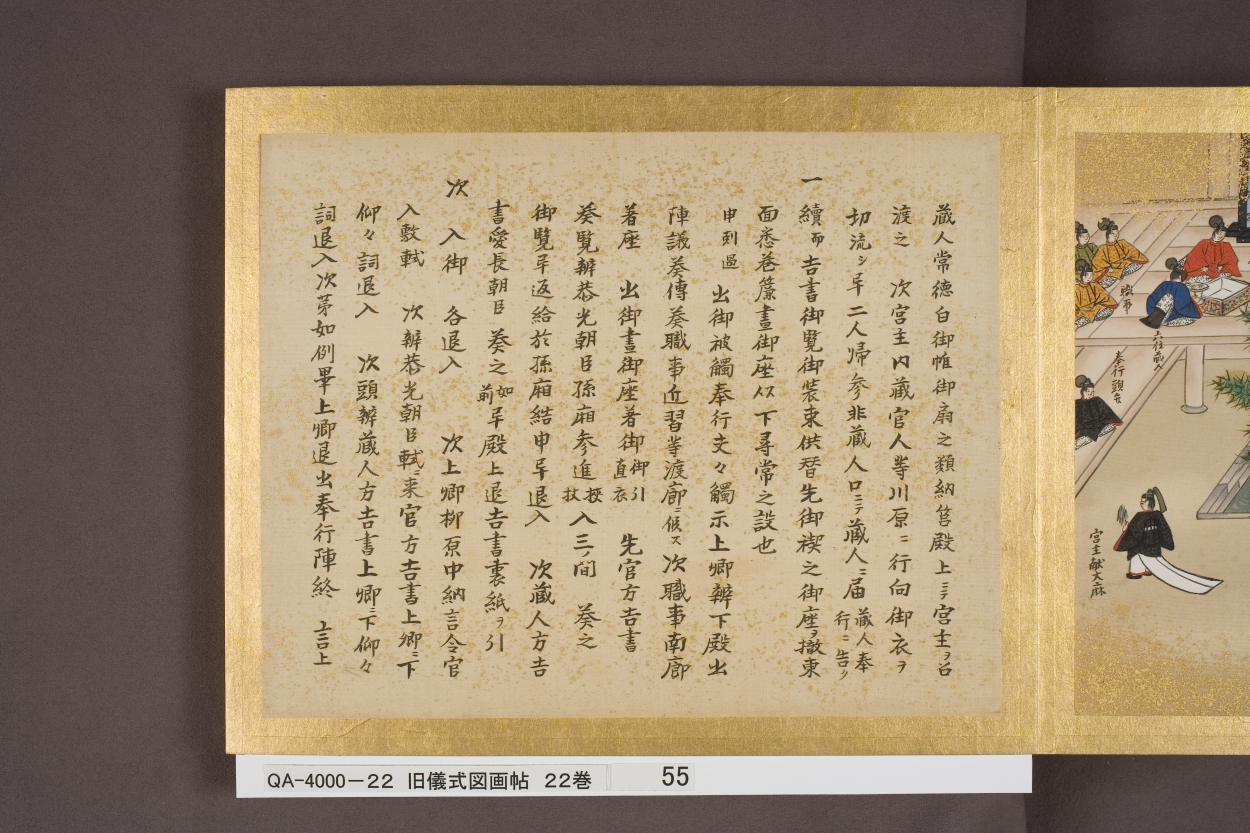 蔵人常徳白御帷御扇之類納筥殿上ニテ宮主ヲ召
渡之　次宮主内蔵官人等川原ニ行向御衣ヲ
切流シ早二人帰参非蔵人口ニテ蔵人ニ届蔵人奉行ニ告ク
一續而吉書御覧御装束供替先御禊之御座ヲ撤東
面悉巻簾晝御座以下尋常之設也
申刻過　出御被觸奉行支々觸示上卿辨下殿出
陣議奏傳奏職事近習等渡廊ニ候ス次職事南廊
着座　出御晝御座着御御引直衣　先官方吉書
奏覧辨恭光朝臣孫廂参進挾杖入三ノ間　奏之
御覧早返給於孫廂結申早退入　次蔵人方吉
書愛長朝臣奏之如前早殿上退吉書裏紙ヲ引
次　入御　各退入　次上卿柳原中納言令官
入敷軾　次辨恭光朝臣軾ニ来官方吉書上卿ニ下
仰々詞退入　次頭辨蔵人方吉書上卿ニ下仰々
詞退入次第如例畢上卿退出奉行陣終　言上
職事
六位蔵人
奉行頭弁
宮主献大麻
QA-4000-22 旧儀式図画帖 22巻 55